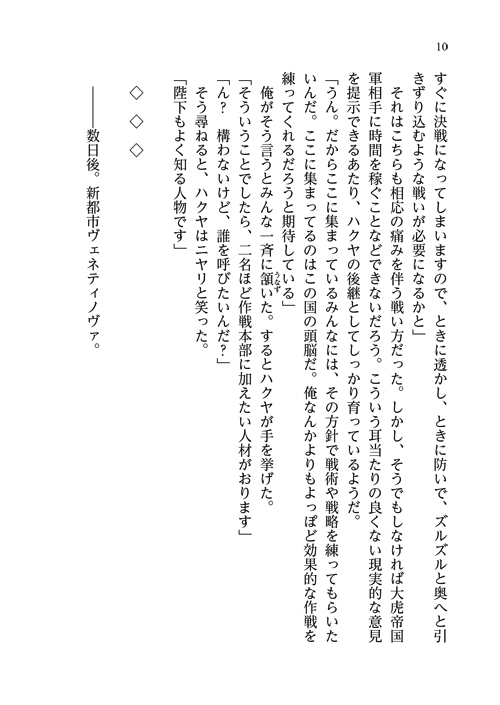 10
すぐに決戦になってしまいますので、ときに透かし、ときに防いで、ズルズルと奥へと引
きずり込むような戦いが必要になるかと」
　それはこちらも相応の痛みを伴う戦い方だった。しかし、そうでもしなければ大虎帝国
軍相手に時間を稼ぐことなどできないだろう。こういう耳当たりの良くない現実的な意見
を提示できるあたり、ハクヤの後継としてしっかり育っているようだ。
「うん。だからここに集まっているみんなには、その方針で戦術や戦略を練ってもらいた
いんだ。ここに集まってるのはこの国の頭脳だ。俺なんかよりもよっぽど効果的な作戦を
練ってくれるだろうと期待している」
　俺がそう言うとみんな一斉に頷いた。するとハクヤが手を挙げた。
うなず
「そういうことでしたら、二名ほど作戦本部に加えたい人材がおります」
「ん？　構わないけど、誰を呼びたいんだ？」
　そう尋ねると、ハクヤはニヤリと笑った。
「陛下もよく知る人物です」
◇　◇　◇
――数日後。新都市ヴェネティノヴァ。